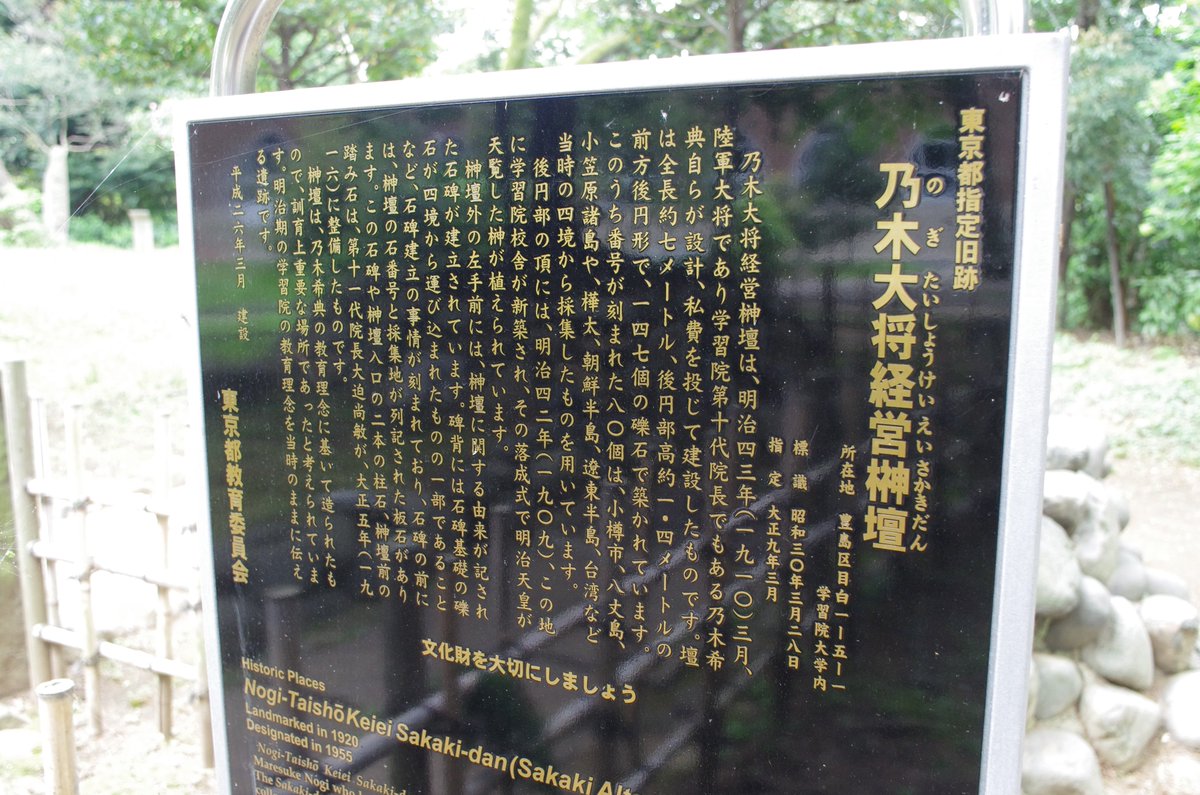 東京都指定旧跡
乃木大将経営榊壇
のぎ たいしょうけいえいさかきだん
所在地 豊島区目白一ー五ー一
学習院大学内
標識 昭和三〇年三月二八日
指定 大正九年三月
乃木大将経営榊壇は、明治四三年(一九一〇)三月、
陸軍大将であり学習院第十代院長でもある乃木希
典自らが設計、私費を投じて建設したものです。壇
は全長約七メートル、後円部高約一・四メートルの
前方後円形で、一四七個の礫石で築かれています。
このうち番号が刻まれた八〇個は、小樽市、八丈島、
小笠原諸島や、樺太、朝鮮半島、遼東半島、台湾など
当時の四境から採集したものを用いています。
後円部の頂には、明治四二年(一九〇九)、この地
に学習院校舎が新築され、その落成式で明治天皇が
天覧した榊が植えられています。
榊壇外の左手前には、榊壇に関する由来が記され
た石碑が建立されています。碑背には石碑基礎の礫
石が四境から運び込まれたものの一部であること
など、石碑建立の事情が刻まれており、石碑の前に
は、榊壇の石番号と採集地が列記された板石があり
ます。この石碑や榊壇入口の二本の柱石、榊壇前の
踏み石は、第十一代院長大迫尚敏が、大正五年(一九
一六)に整備したものです。
榊壇は、乃木希典の教育理念に基いて造られたも
ので、訓育上重要な場所であったと考えられていま
す。明治期の学習院の教育理念を当時のままに伝え
る遺跡です。
平成二六年三月 建設
東京都教育委員会
文化財を大切にしましょう
Historic Places
Nogi-Taishō Keiei Sakaki-dan (Sakaki Alt
Landmarked in 1920
Designated in 1955
Nogi-Taishō Keiei Sakaki-d
Maresuke Nogi who
The Sakaki-d